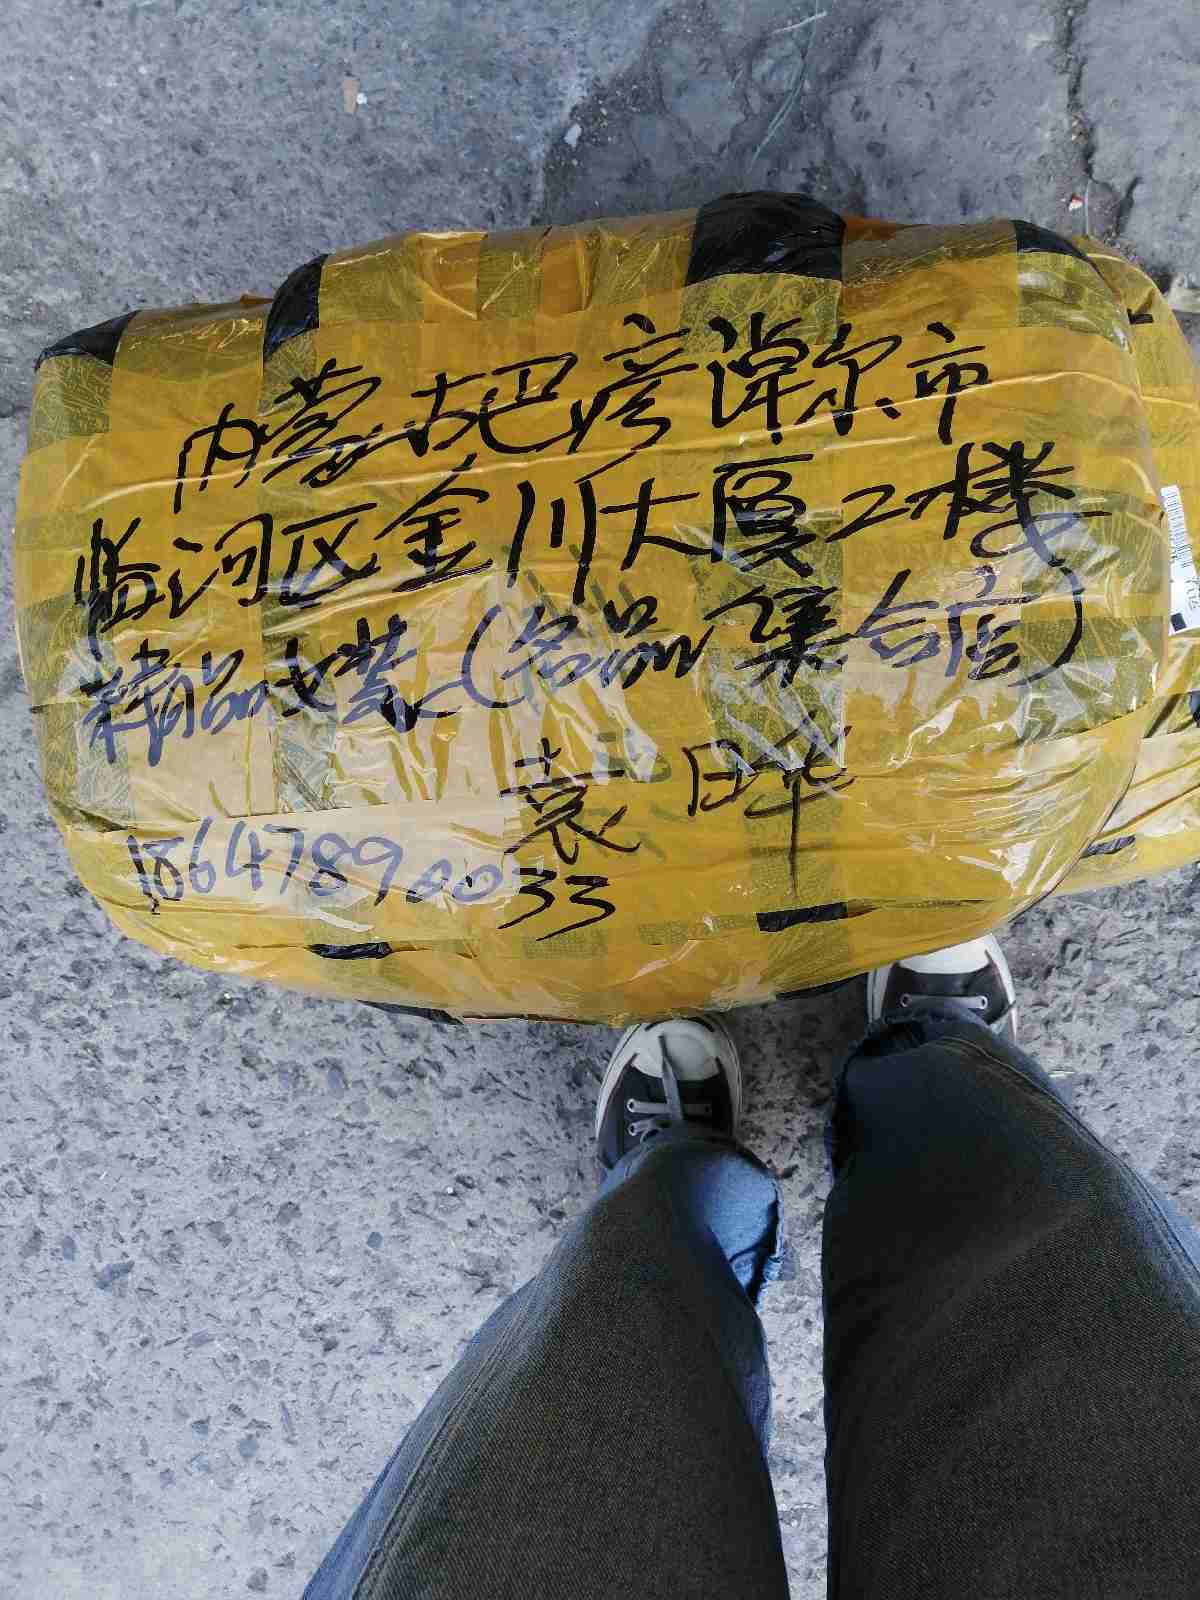 内蒙古巴彦淖尔市
临河区金川大厦二楼
精品女装(名品集合店)
袁晔
18647890033